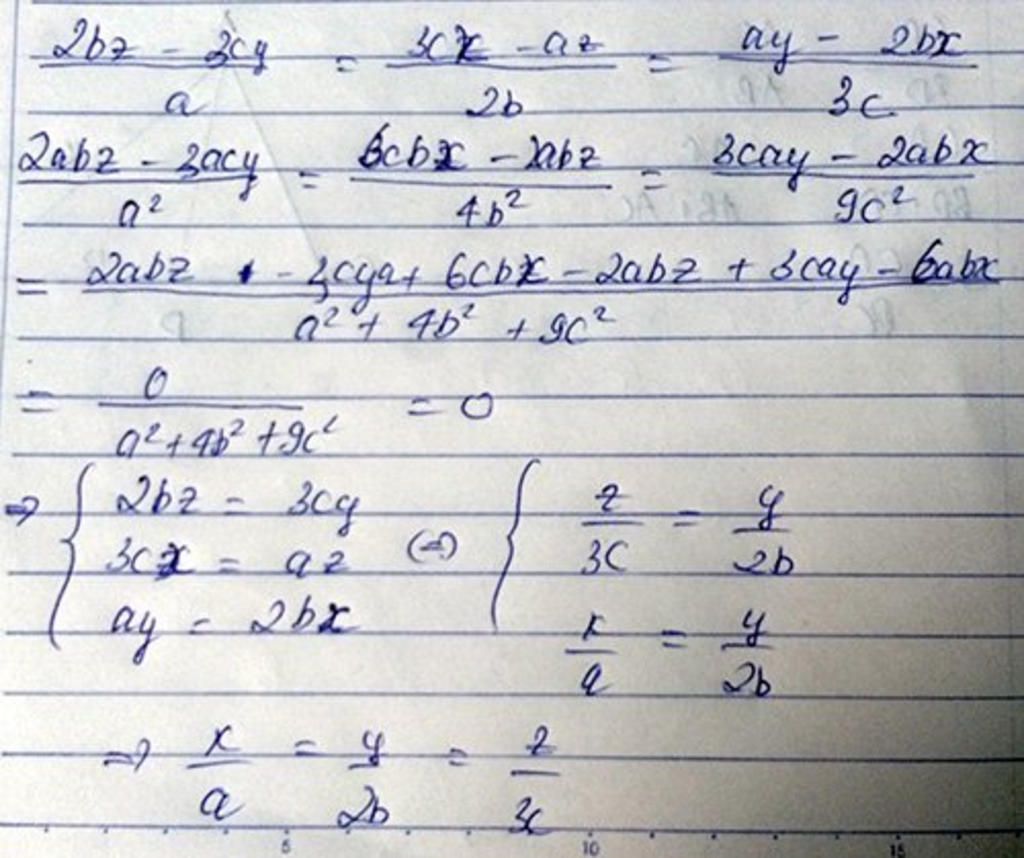 (2bz - 3cy)/a = (3cx - az)/2b = (ay - 2bx)/3c
(2abz - 3acy)/a² = (6cbx - 2abz)/4b² = (3cay - 2abx)/9c²
= (2abz - 3cya + 6cbx - 2abz + 3cay - 6abx)/(a² + 4b² + 9c²)
= 0/(a² + 4b² + 9c²) = 0
⇒ { 2bz = 3cy
3cx = az (⇒) { z/3c = y/2b
ay = 2bx x/a = y/2b
⇒ x/a = y/2b = z/3c
5 10 15